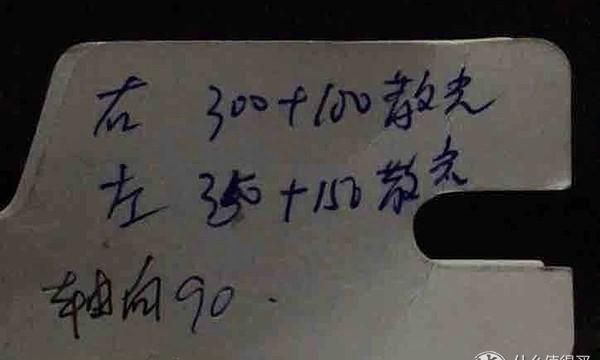 右 300+100散光
左 350+150散光
轴向90.
什么值得买